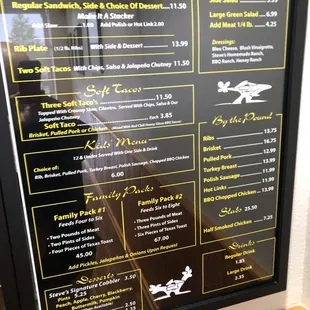 Regular Sandwich, Side & Choice Of Dessert....11.50
Make It A Stacker
Add Slaw .50 Add Polish or Hot Link 2.00
Rib Plate (1/2 lb. Ribs) With Side & Dessert 13.99
Two Soft Tacos With Chips, Salsa & Jalapeño Chutney 11.50
Soft Tacos
Three Soft Tacos 11.50
Topped With Creamy Slaw, Cilantro. Served With Chips, Salsa & Our
Jalapeño Chutney
Soft Taco Each 3.85
Brisket, Pulled Pork or Chicken
Kids' Menu
12 & Under Served With One Side & Drink
Choice of:
Rib, Brisket, Pulled Pork, Turkey Breast, Polish Sausage, Chopped BBQ Chicken
6.00
Family Packs
Family Pack #1
Feeds Four to Six
• Two Pounds of Meat
• Two Pints of Sides
• Four Pieces of Texas Toast
45.00
Family Pack #2
Feeds Six to Eight
• Three Pounds of Meat
• Three Pints of Sides
• Six Pieces of Texas Toast
67.00
Add Pickles, Jalapeños & Onions Upon Request
Desserts
Steve's Signature Cobbler 3.50
Pints 5.25
Peach, Apple, Cherry, Blackberry,
Buttermilk, Pumpkin
Side Salad
Large Green Salad 6.99
Add Meat 1/4 lb. 4.25
Dressings:
Bleu Cheese, Blush Vinaigrette,
Steve's Homemade Ranch,
BBQ Ranch, Honey Ranch
By the Pound
Ribs 13.75
Brisket 16.75
Pulled Pork 12.99
Turkey Breast 13.25
Polish Sausage 11.99
Hot Links 11.99
BBQ Chopped Chicken 11.99
Slabs 25.50
Half Smoked Chicken
Drinks
Regular Drink
1.85
Large Drink
2.35